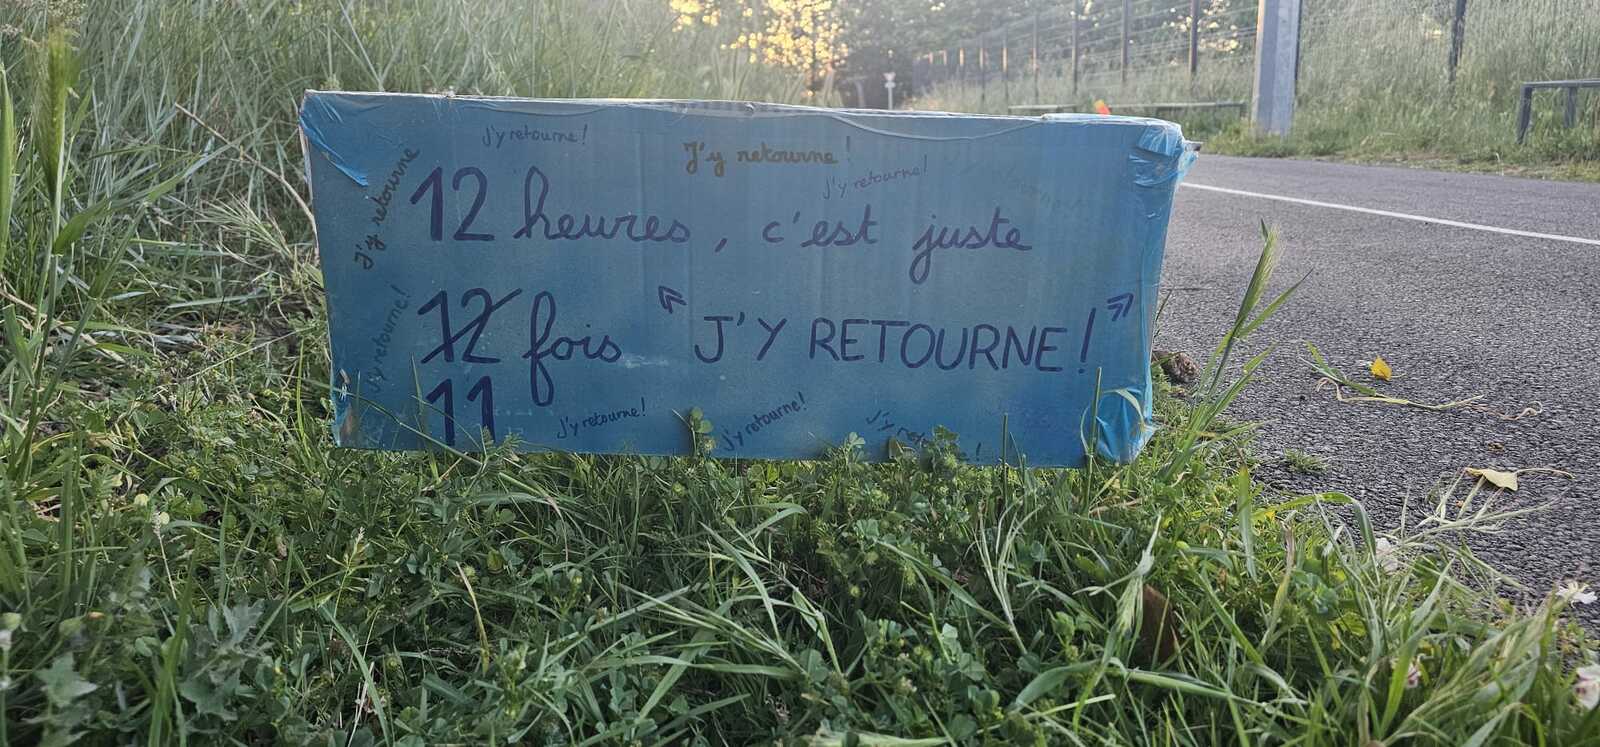 J'y retourne!
J'y retourne!
J'y retourne!
J'y retourne
12 heures, c'est juste
12 fois "J'Y RETOURNE!"
11
J'y retourne!
J'y retourne!
J'y retourne!
J'y retourne!